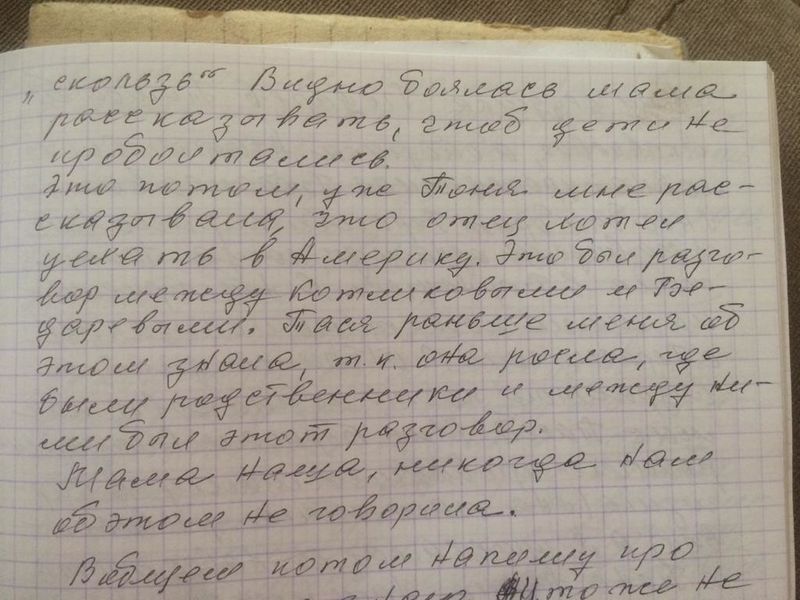 „скользь“ Видно боялась мама
рассказывать, чтоб дети не
проболтались.
Это потом, уже Тоня мне рас-
сказывала, что отец хотел
уехать в Америку. Это был разго-
вор между Котликовыми и Бе-
даревыми. Тася раньше меня об
этом знала, т.к. она росла, где
были родственники и между ни-
ми был этот разговор.
Мама наша, никогда нам
об этом не говорила.
Вобщем потом напишу про
тоже не